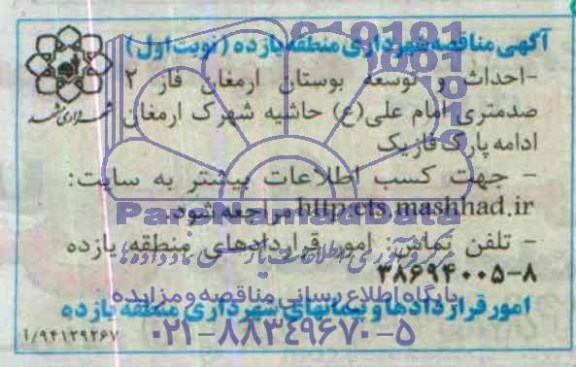 آگهی مناقصه شهرداری منطقه یازده (نوبت اول)
-احداث و توسعه بوستان ارمغان فاز ۲
صدمتری امام علی(ع) حاشیه شهرک ارمغان
ادامه پارک فازیک
- جهت کسب اطلاعات بیشتر به سایت:
http:cts.mashhad.ir مراجعه شود.
- تلفن تماس: امور قراردادهای منطقه یازده
۳۸۶۹۴۰۰۵-۸
امور قراردادها و پیمانهای شهرداری منطقه یازده
۱/۹۴۱۲۹۲۶۷
شهرداری مشهد
ParsNamadData
پایگاه اطلاع رسانی مناقصه و مزایده
۰۲۱-۸۸۳۴۹۶۷۰-۵